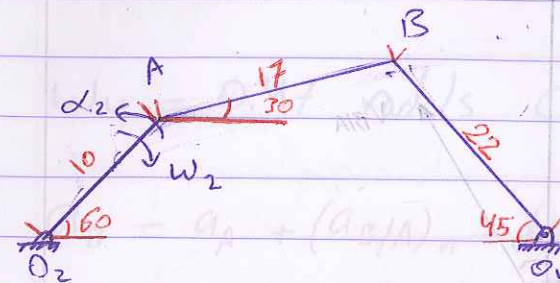 B
A
17
30
α₂
10
ω₂
22
60
45
O₂
O₄